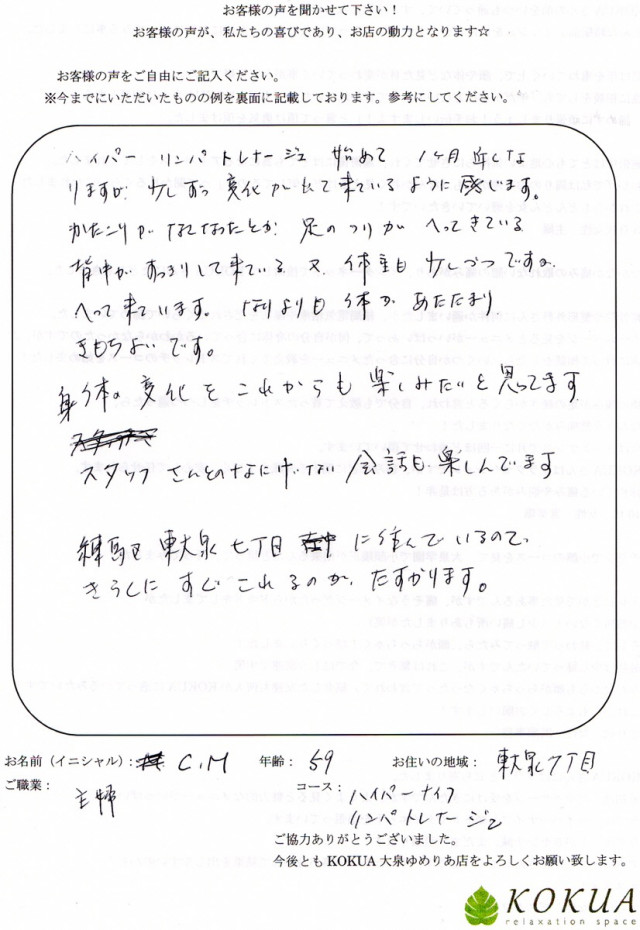 お客様の声を聞かせて下さい！
お客様の声が、私たちの喜びであり、お店の動力となります☆
お客様の声をご自由にご記入ください。
※今までにいただいたものの例を裏面に記載しております。参考にしてください。
ハイパー リンパトレナージュ 始めて 1ヶ月近くな
りますが 少しずつ変化が出て来ているように感じます。
かたこりがなくなったとか 足のつりが へってきている
背中が すっきりして来ている 又 体重も 少しづつですが
へって来ています。 なにより日 体が あたたまり
きもちよいです。
身体の変化を これからも 楽しみたいと思ってます
スタッフさんとのなにげない会話も楽しんでます
練馬区 東大泉 七丁目 に住んでいるので
きらくに すぐ これるのが、たすかります。
お名前（イニシャル）： C.M 年齢： 59 お住いの地域： 東大泉7丁目
ご職業： 主婦 コース： ハイパーナイフ
リンパトレナージュ
ご協力ありがとうございました。
今後ともKOKUA大泉ゆめりあ店をよろしくお願い致します。
KOKUA
relaxation space